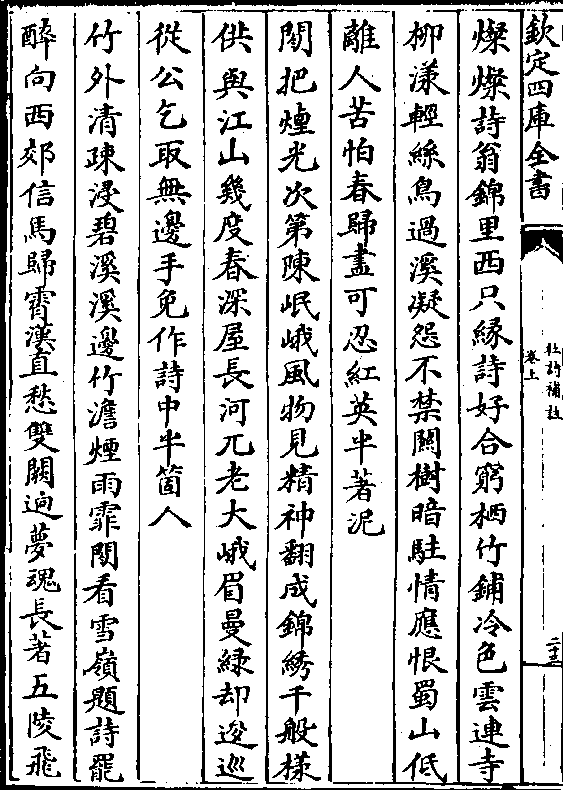 欽定四庫全書
杜詩補註
卷上
二十三
燦燦詩翁錦里西只緣詩好合窮栖竹鋪冷色雲連寺
柳漾輕絲鳥過溪凝怨不禁關樹暗駐情應恨蜀山低
離人苦怕春歸盡可忍紅英半著泥
閒把煙光次第陳岷峨風物見精神翻成錦綉千般様
供與江山幾度春深屋長河兀老大峨眉曼緑却逡巡
從公乞取無邊手免作詩中半箇人
竹外清疎浸碧溪溪邊竹澹煙雨霏閒看雪嶺題詩罷
醉向西郊信馬歸霄漢直愁雙闕迥夢魂長著五陵飛